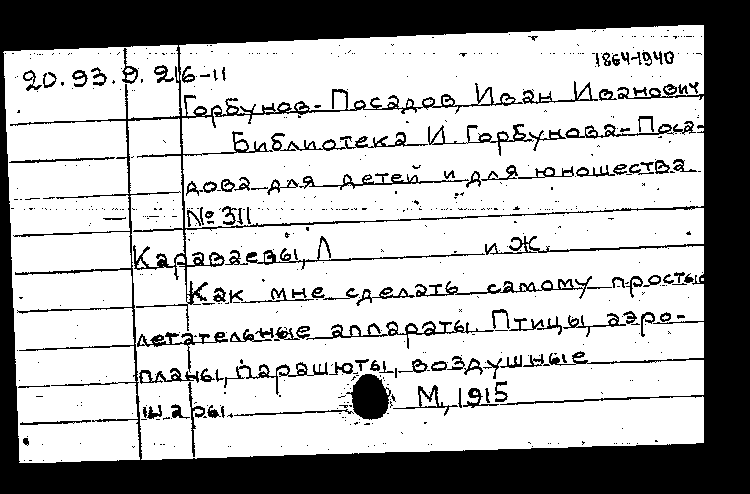 1864-1940
20.93.9.216-11
Горбунов-Посадов, Иван Иванович,
Библиотека И. Горбунова-Поса-
дова для детей и для юношества.
№ 311.
Караваевы, Л и Ж.
Как мне сделать самому простые
летательные аппараты. Птицы, аэро-
планы, парашюты, воздушные
шары. М, 1915